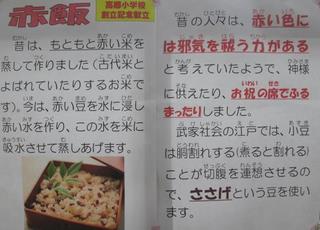 赤飯
高郷小学校
創立記念献立
昔は、もともと赤い米を
蒸して作りました（古代米と
よばれていたりするお米で
す）。今は、赤い豆を水に浸し
赤い水を作り、この水を米に
吸水させて蒸しあげます。
昔の人々は、赤い色に
は邪気を祓う力がある
と考えていたようで、神様
に供えたり、お祝の席でふる
まったりしました。
武家社会の江戸では、小豆
は胴割れする（煮ると割れる）
ことが切腹を連想させるの
で、ささげという豆を使い
ます。